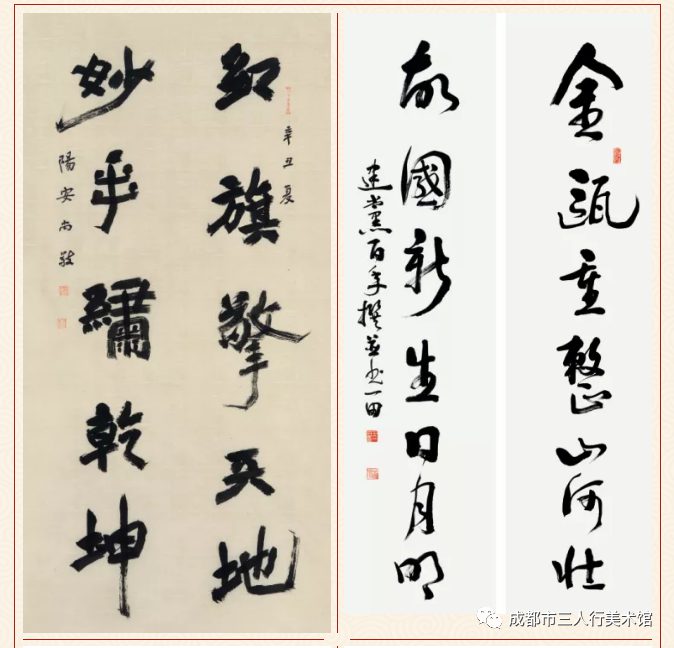 紅旗擎天地
辛丑夏
妙手繡乾坤
陽安尚
金甌重整山河壯
故國新生日月明
建黨百年撰並书一田
成都市三人行美术馆